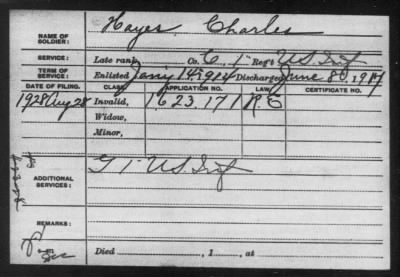 NAME OF SOLDIER: Hayes, Charles
SERVICE: Late rank, Co. C, 1" Reg't U.S. Inf
TERM OF SERVICE: Enlisted Jan'y 14, 1914 Discharged June 8, 19
DATE OF FILING. CLASS. APPLICATION NO. LAW. CERTIFICATE NO.
1928 Aug 28 Invalid, 1623.171 R.E
Widow,
Minor,
ADDITIONAL SERVICES: G 1" U.S. Inf
REMARKS:
Died , 1 , at